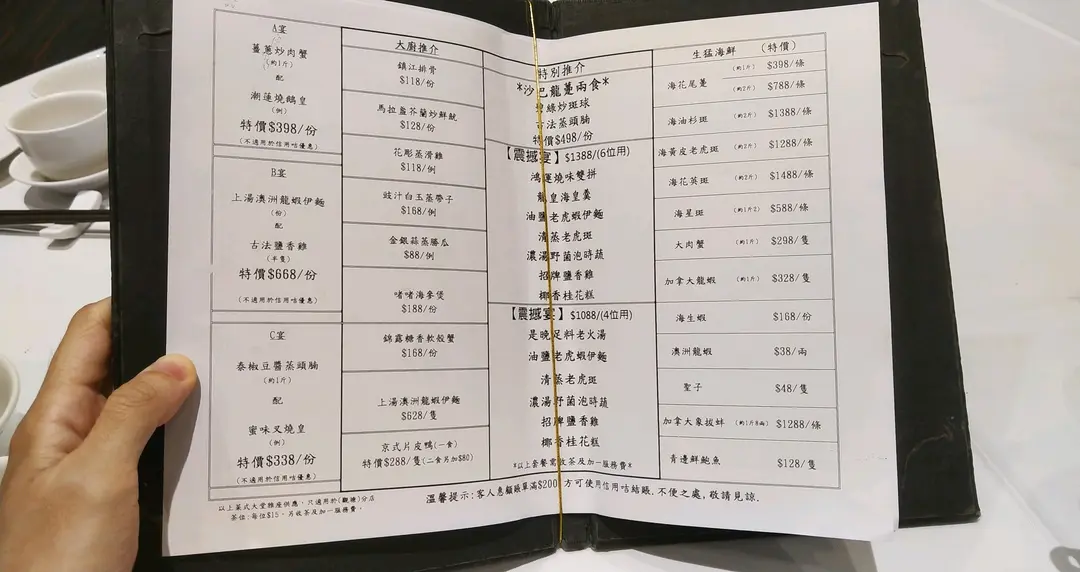 A宴
薑蔥炒肉蟹
(約1斤)
配
潮蓮燒鵝皇
(例)
特價$398/份
(不適用於信用咭優惠)
B宴
上湯澳洲龍蝦伊麵
(份)
配
古法鹽香雞
(半隻)
特價$668/份
(不適用於信用咭優惠)
C宴
泰椒豆醬蒸頭腩
(約1斤)
配
蜜味叉燒皇
(例)
特價$338/份
(不適用於信用咭優惠)
大廚推介
鎮江排骨
$118/份
馬拉盞芥蘭炒鮮魷
$128/份
花彫蒸滑雞
$118/例
豉汁白玉蒸帶子
$168/例
金銀蒜蒸勝瓜
$88/例
啫啫海參煲
$188/份
錦露糖香軟殼蟹
$168/份
上湯澳洲龍蝦伊麵
$628/隻
京式片皮鴨(一食)
特價$288/隻(二食另加$80)
特別推介
*沙巴龍躉兩食*
碧綠炒斑球
古法蒸頭腩
特價$498/份
【震撼宴】$1388/(6位用)
鴻運燒味雙拼
龍皇海皇羹
油鹽老虎蝦伊麵
清蒸老虎斑
濃湯野菌泡時蔬
招牌鹽香雞
椰香桂花糕
【震撼宴】$1088/(4位用)
是晚足料老火湯
油鹽老虎蝦伊麵
清蒸老虎斑
濃湯野菌泡時蔬
招牌鹽香雞
椰香桂花糕
*以上套餐需收茶及加一服務費*
生猛海鮮 (特價)
海花尾躉 (約1斤) $398/條
(約2斤) $788/條
海油杉斑 (約2斤) $1388/條
海黃皮老虎斑 (約2斤) $1288/條
海花英斑 (約2斤) $1488/條
海星斑 (約1斤2) $588/條
大肉蟹 (約1斤) $298/隻
加拿大龍蝦 (約1斤) $328/隻
海生蝦 $168/份
澳洲龍蝦 $38/兩
聖子 $48/隻
加拿大象拔蚌 (約1斤8兩) $1288/條
青邊鮮鮑魚 $128/隻
以上菜式大堂雅座供應，只適用於(觀塘)分店
茶位:每位$15。另收茶及加一服務費。
溫馨提示:客人惠顧賬單滿$200方可使用信用咭結賬.不便之處,敬請見諒.